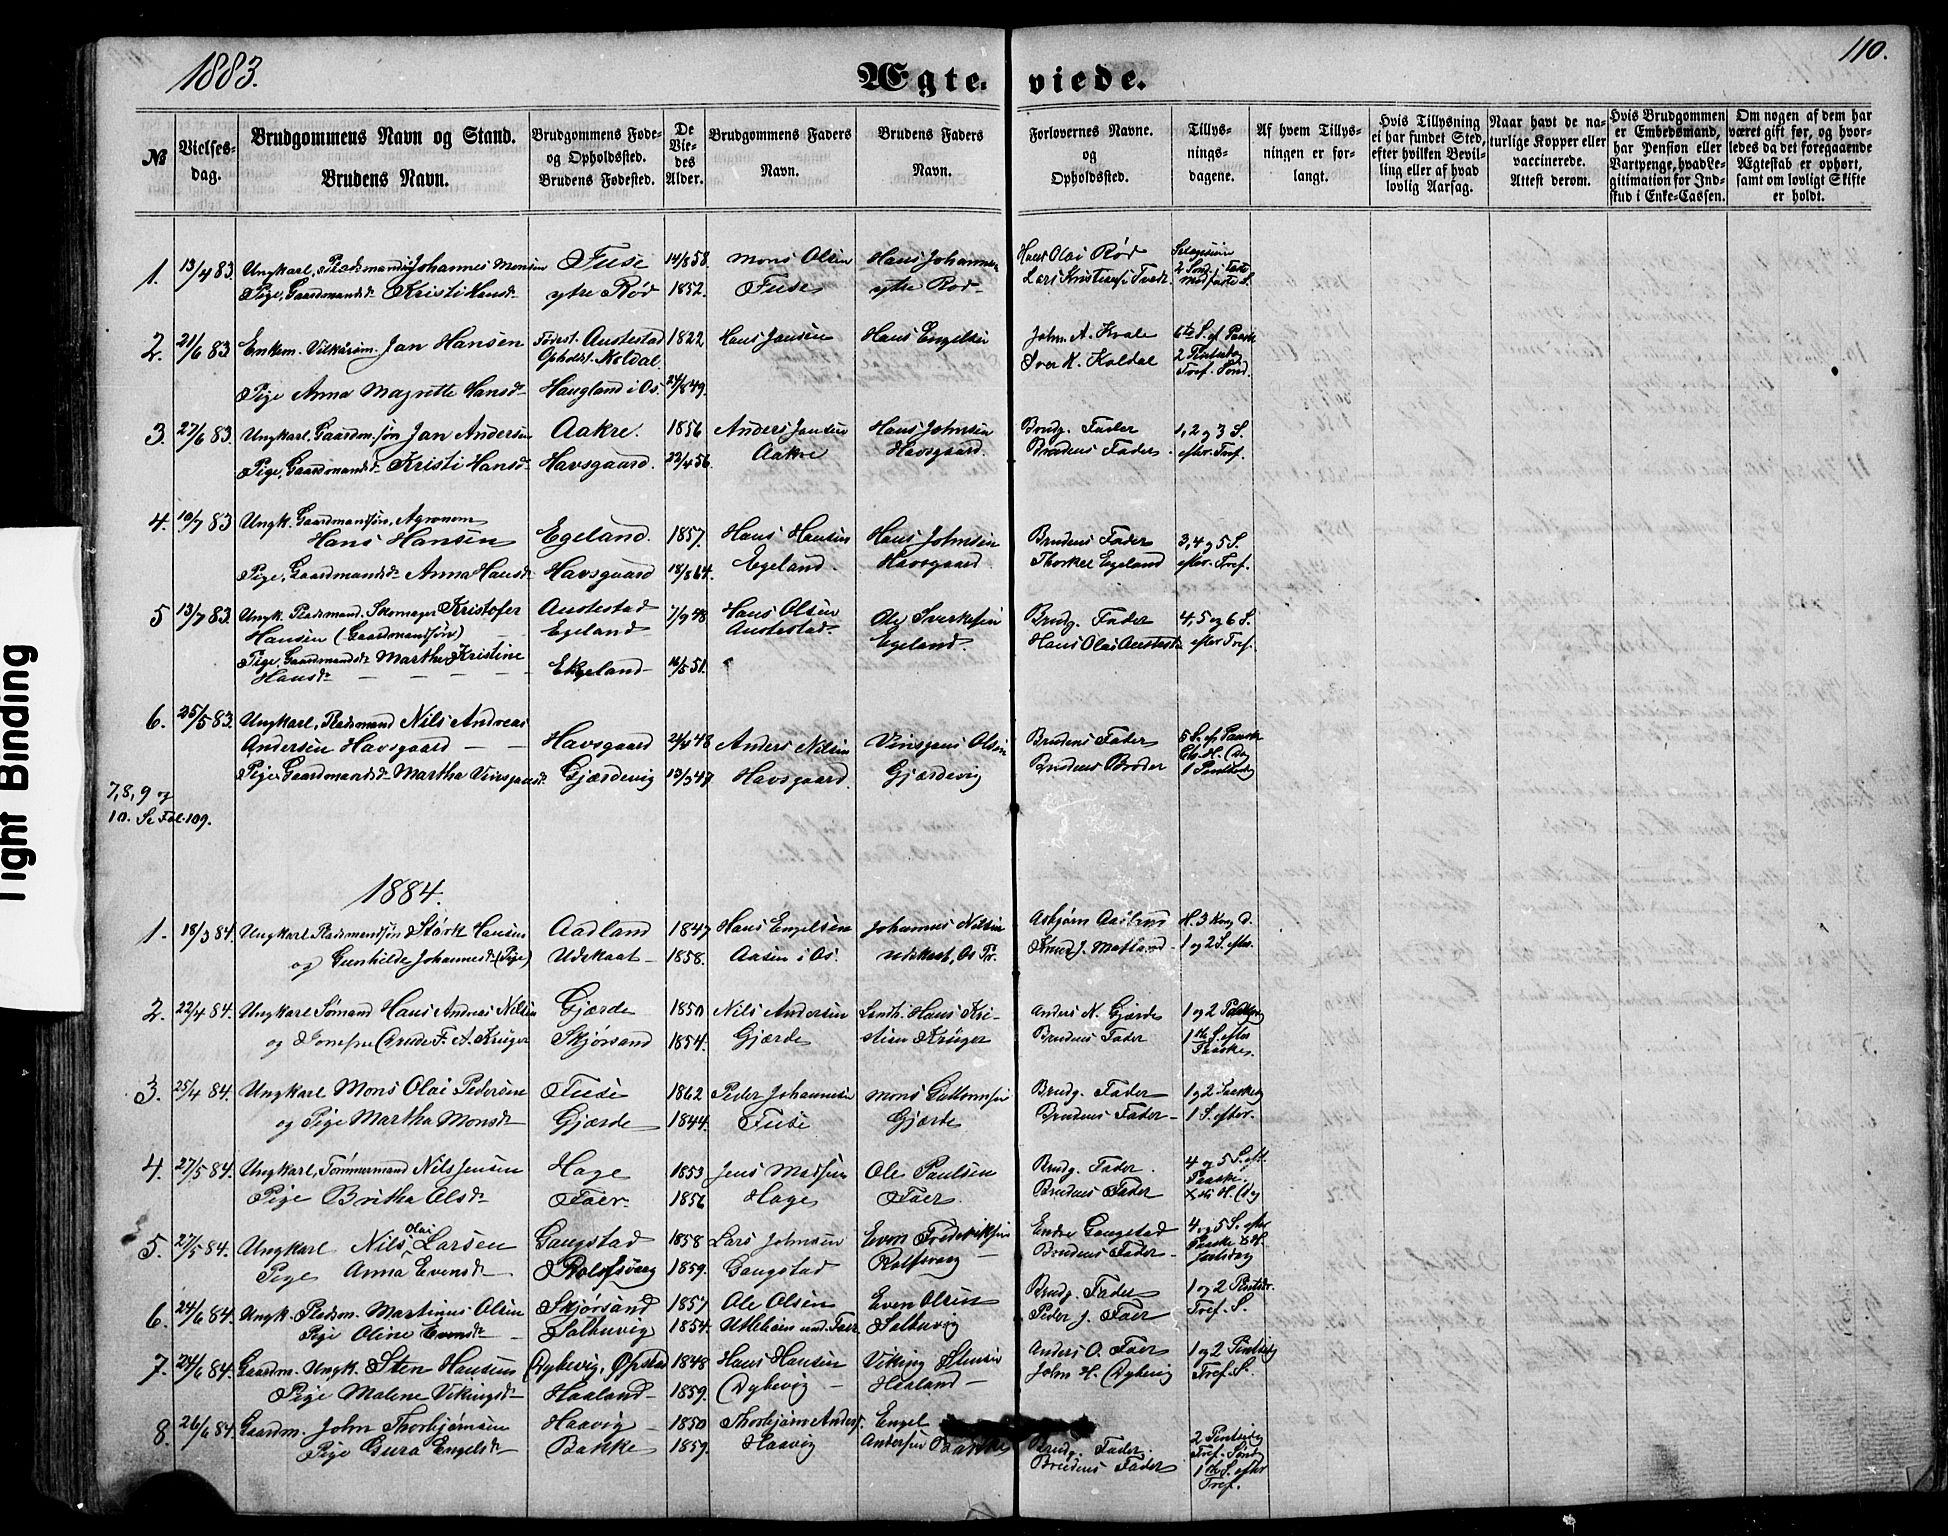 1883.
110.
Ægte-viede.
№
Vielses-dag.
Brudgommens Navn og Stand.
Brudens Navn.
Brudgommens Føde- og Opholdssted.
Brudens Fødested.
De Viedes Alder.
Brudgommens Faders Navn.
Brudens Faders Navn.
Forlovernes Navne. og Opholdssted.
Tillysningsdagene.
Af hvem Tillysningen er forlangt.
Hvis Tillysning ei har fundet Sted, efter hvilken Bevilling eller af hvad lovlig Aarsag.
Naar havt de naturlige Kopper eller vaccinerede. Attest derom.
Hvis Brudgommen er Embedsmand, har Pension eller Vartpenge, hvad Legitimation for Indskud i Enke-Cassen.
Om nogen af dem har været gift før, og hvorledes da det foregaaende Ægteskab er ophørt, samt om lovligt Skifte er holdt.
1. 13/4 83. Ungkarl, Pladsmand Johannes Monsen Fuse 14/8 58. Mons Olsen Hans Johannes Hans Olai Rød
Pige, Gaardmandsd. Kristi Hansd. ytre Rød 1852. Fuse ytre Rød Lars Kristians. Tvedt 2 Sønd. i Faste
2. 21/6 83 Enkem. Vilkårsm. Jan Hansen Fødest. Austestad 1822 Hans Jansen Hans Engelsen John A. Kvale 6te S. ef. Paaske
Opholdst. Koldal Iver K. Koldal 2 Pintsedag
Pige Anna Magrette Hansd. Haugland i Os. 24/8 49. Tref. Sønd.
3. 27/6 83. Ungkarl, Gaardm. søn Jan Andersen Aakre. 1856 Anders Jansen Hans Johnsen Brudg. Fader 1, 2 og 3 S.
Pige, Gaardmandsd. Kristi Hansd. Havsgaard. 22/4 56. Aakre Havsgaard. Brudens Fader. efter Tref.
4. 10/7 83 Ungk. Gaardmandssøn, Agronom
Hans Hansen Egeland. 1857. Hans Hansen Hans Johnsen Brudens Fader 3, 4 og 5 S.
Pige, Gaardmandsd. Anna Hansd. Havsgaard 18/8 64. Egeland. Havsgaard Thorkel Egeland efter Tref.
5 13/7 83. Ungk. Pladsmand. Skomager Kristofer Austestad 7/9 48 Hans Olsen Ole Sverkesen Brudg. Fader 4, 5 og 6 S.
Hansen (Gaardmandssøn) Egeland Austestad. Egeland. Hans Olai Austest. efter Tref.
Pige, Gaardmandsd. Marthe Kristine Ekeland 16/5 51.
Hansd.
6. 25/5 83. Ungkarl, Pladsmand Nils Andreas
Andersen Havsgaard Havsgaard 48 Anders Nilsen Vinsgaus Olsen Brudens Fader 5 S. ef. Paaske
Pige Gaardmandsd. Martha Vinsgausd. Gjærdevig 13/3 47 Havsgaard. Gjærdevig Brudens Broder 1 Pintsedag
7, 8, 9 og
10. Se Fol. 109.
1884.
1. 18/3 84. Ungkarl Pladsmandssøn Størk Hansen Aadland 1847 Hans Engelsen Johannes Nilsen Asbjørn H. 3 Kong. D.
og Gunhilde Johannesd. (Pige) Udskaat 1858. Aasen i Os. Udskaat, Os Pr. Knud J. Matland 1 og 2 S. efter.
2. 22/4 84. Ungkarl Sømand Hans Andreas Nilsen Gjærde 1850 Nils Andersen Landh. Hans Kri- Anders N. Gjærde 1 og 2 Paaskedag
og Jomfru F. A. Krüger Skjørsand 1854. Gjærde stian Krüger Brudens Fader 1ste S. efter
Paaske.
3. 25/4 84. Ungkarl Mons Olai Pedersen Fuse 1862 Peder Johannesen Mons Guttormsen Brudg. Fader 1 og 2 Paaskeg
og Pige Martha Monsd. Gjærde 1844. Fuse Gjærde Brudens Fader 1 S. efter.
4. 27/5 84. Ungkarl, Tømmermand Nils Jensen Hage 1853 Jens Madsen Ole Paulsen Brudg. Fader. 4 og 5 S. eft.
Pige Britha Olsd. Faer 1856 Hage Faer. Brudens Fader Paaske.
5. 27/5 84. Ungkarl Nils Olai Larsen Gaugstad 1858 Lars Johnsen Even Frederiksen Endre Gaugstad 4 og 5 S. efter
Pige Anna Evensd. Rolfsvaag 1859. Gaugstad Rolfsvaag Brudens Fader Paaske
6. 24/6 84. Ungk. Pladsm. Martinus Olsen Skjørsand 1857 Ole Olsen Even Olsen Brudg. Fader 1 og 2 Pintsdr.
Pige Oline Evensd. Salhuvig 1854. und. Faer Salhuvig Peder J. Faer Tref. S.
7. 24/6 84. Gaardm. Ungk. Sten Hansen Dybevig, Øpstad 1848 Hans Hansen Viking Stensen Anders O. Faer 1 og 2 Pintsdg
Pige Malene Vikingsd. Haaland 1859. Dybevig Haaland John H. Dybevig Tref. S.
8. 26/6 84. Gaardm. John Thorbjørnsen Haavig 1850 Thorbjørn Anders. Engel 2 Pintsedg
Pige Gura Engelsd. Bakke 1859. Haavig Andersen Bakke Brudg. Fader. Tref. Sønd.
Brudens Fader 1ste S. efter
Tref.
Tight Binding